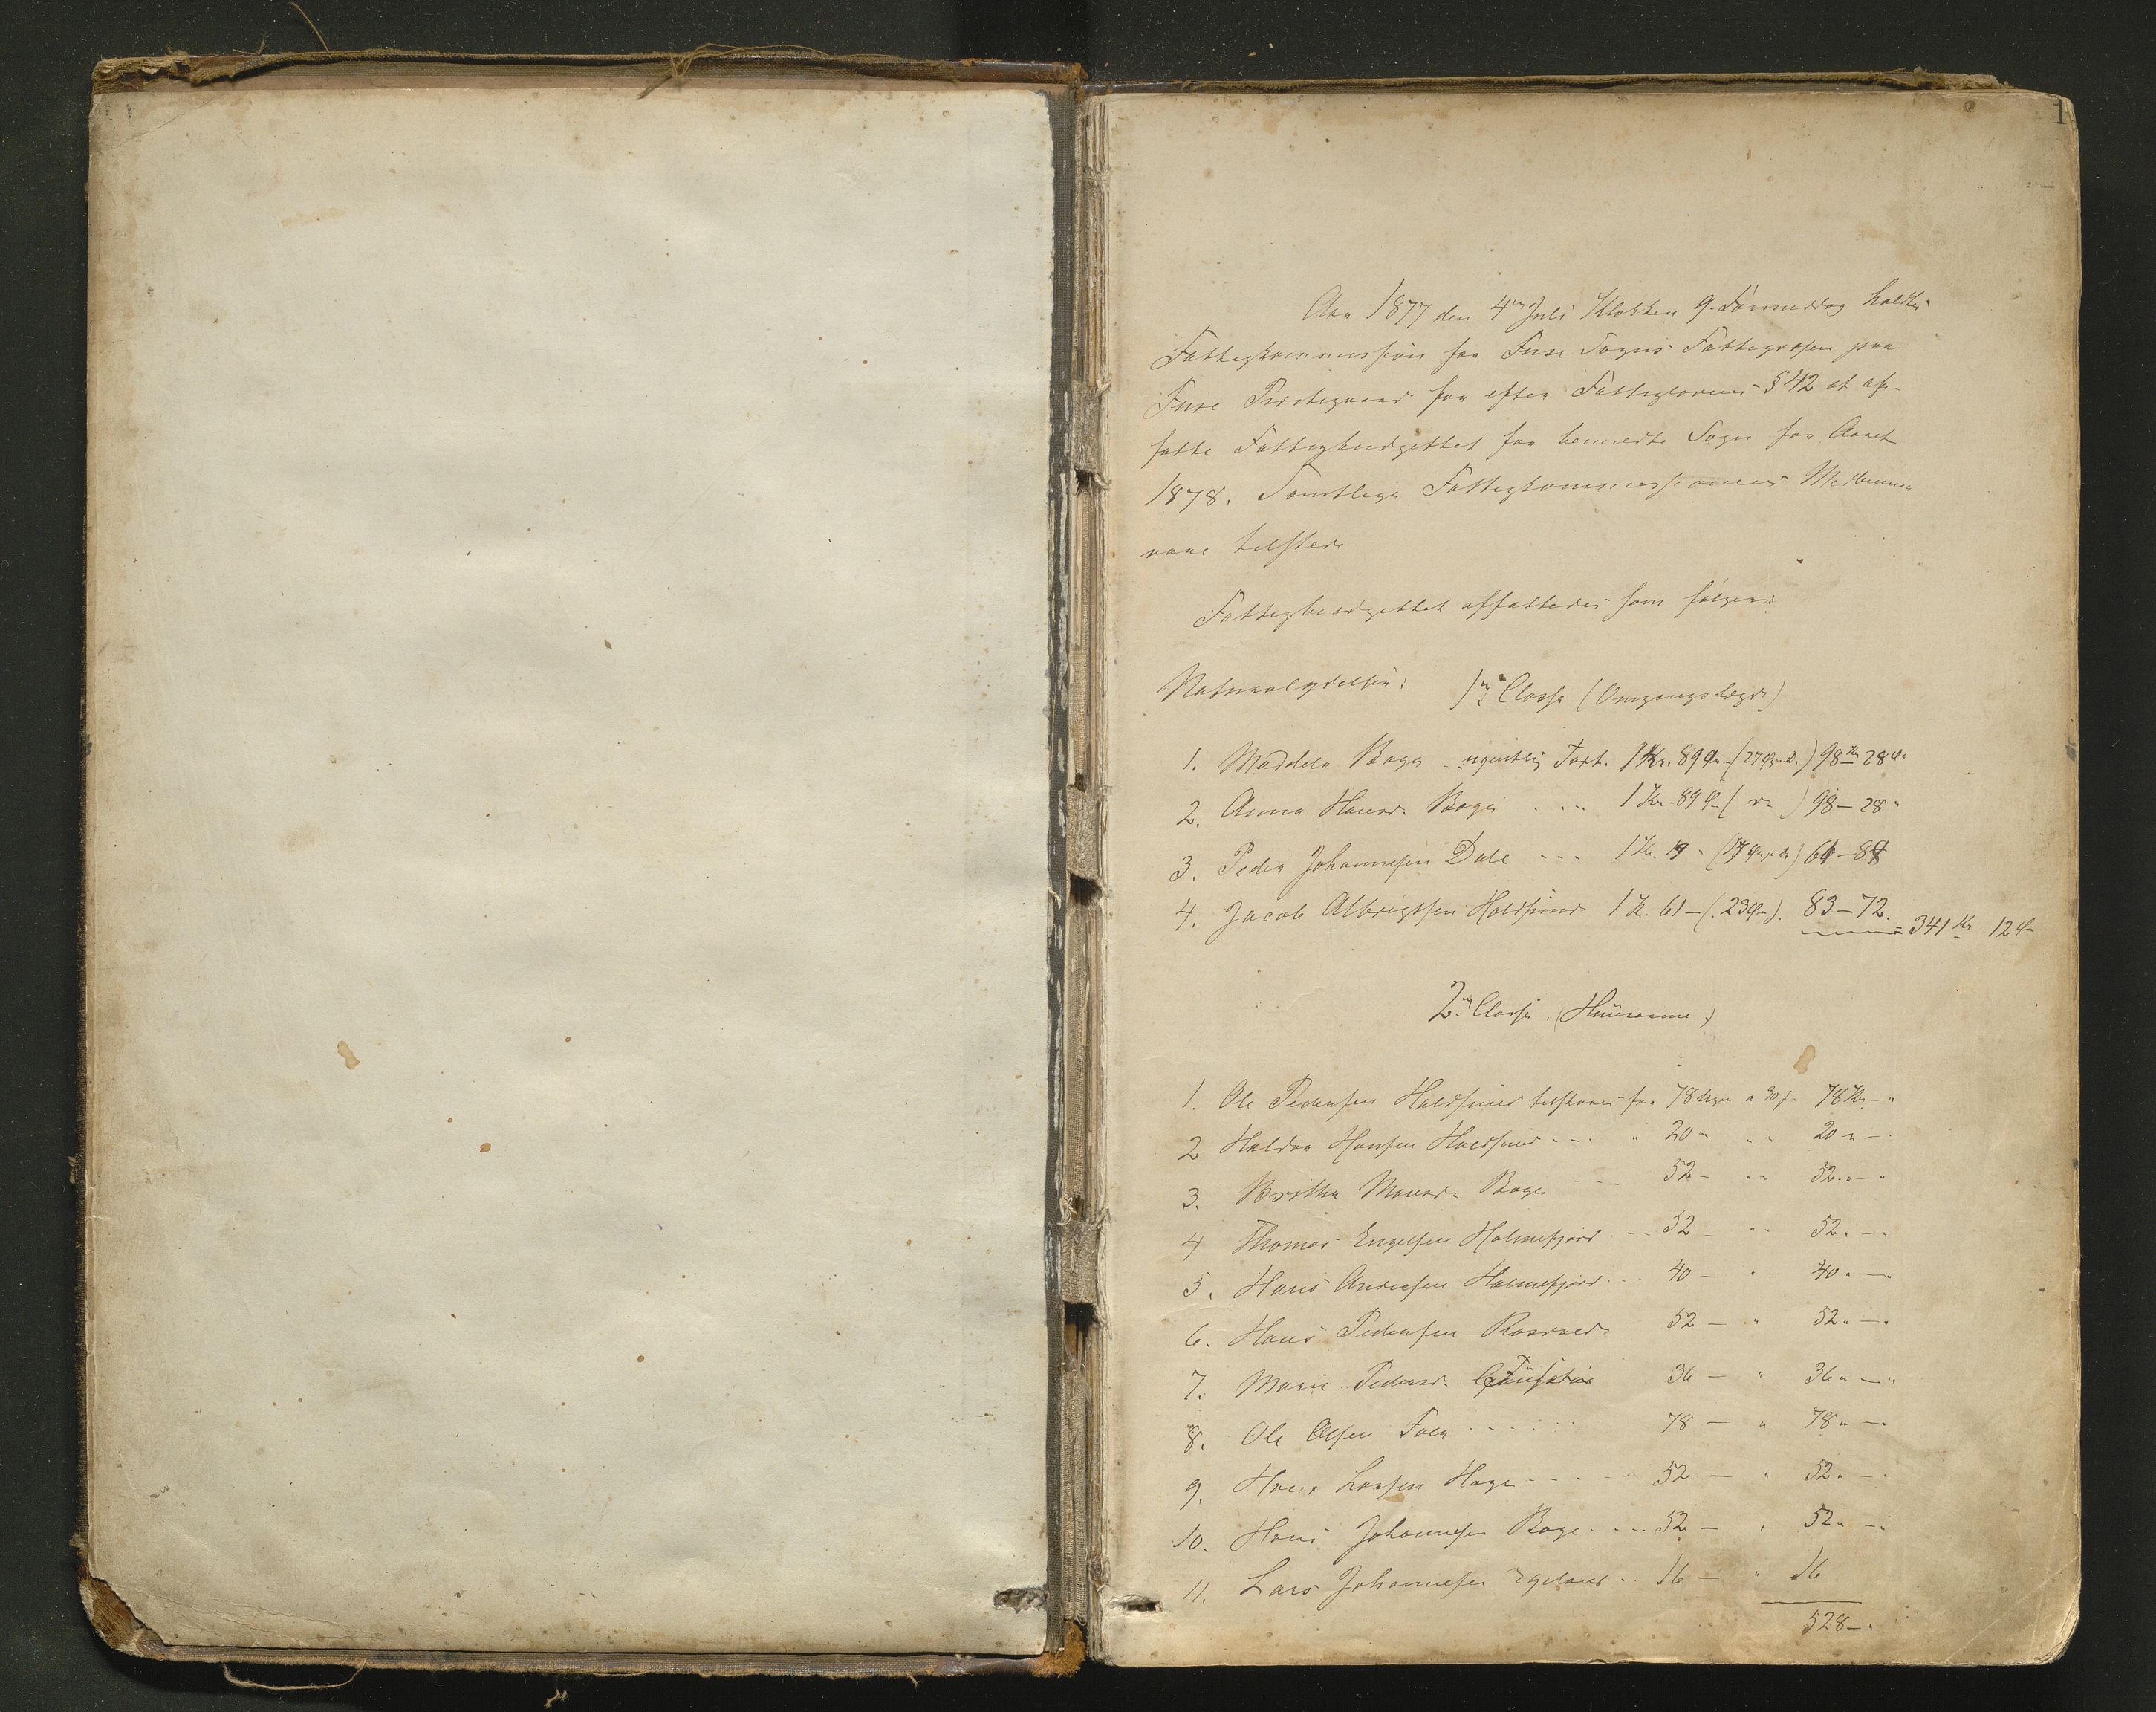 1
Aar 1877 den 4de Juli Klokken 9. Formiddag holdtes
Fattigkommission for Fuse Sogns Fattigvæsen paa
Fuse Præstegaard for efter Fattiglovens § 42 at af-
fatte Fattigbudgettet for bemeldte Sogn for Aaret
1878. Samtlige Fattigkommissionens Medlemmer
vare tilstede
Fattigbudgettet affattedes som følger:
Naturalydelser: 1ste Classe (Omgangslægd)
1. Maddela Boge ugentlig Taxt. 1 Kr. 89 Ø. (27 Ø. ) 98 Kr 28 Ø.
2. Anna Hansd. Boge . . . 1 Kr. 89 Ø ( do ) 98 - 28 "
3. Peder Johannesen Dale - - - 1 Kr. 19 - (17 Ø ) 61 - 84
4. Jacob Albrigtsen Holdhuus 1 K. 61 - (23 Ø -). 83 - 72. = 341 Kr 12 Ø
2den Classe. (Huusarme)
1. Ole Pedersen Holdhuus tilstaaes for 78 Kr - "
2 Haldor Hansen Holdhuus - - - " 20 " " " 20 " -
3. Britha Monsd. Boge - - - 52 - " " 52 " - "
4 Thomas Engelsen Holmefjord - - - 52 - " " 52 " - "
5. Hans Andersen Holmefjord . . . 40 - " - 40 " -
6. Hans Pedersen Rosvaer 52 - " 52 " - "
7. Marie Pedersd. 36 - " 36 " - "
8. Ole Olsen - - - - 78 - " 78 " - "
9. Hans Larsen Hage - - - - 52 - " 52 " -
10. Hans Johannesen Boge - - - 52 - " 52 " - "
11. Lars Johannesen Egeland . . 16 - " 16
528 - "